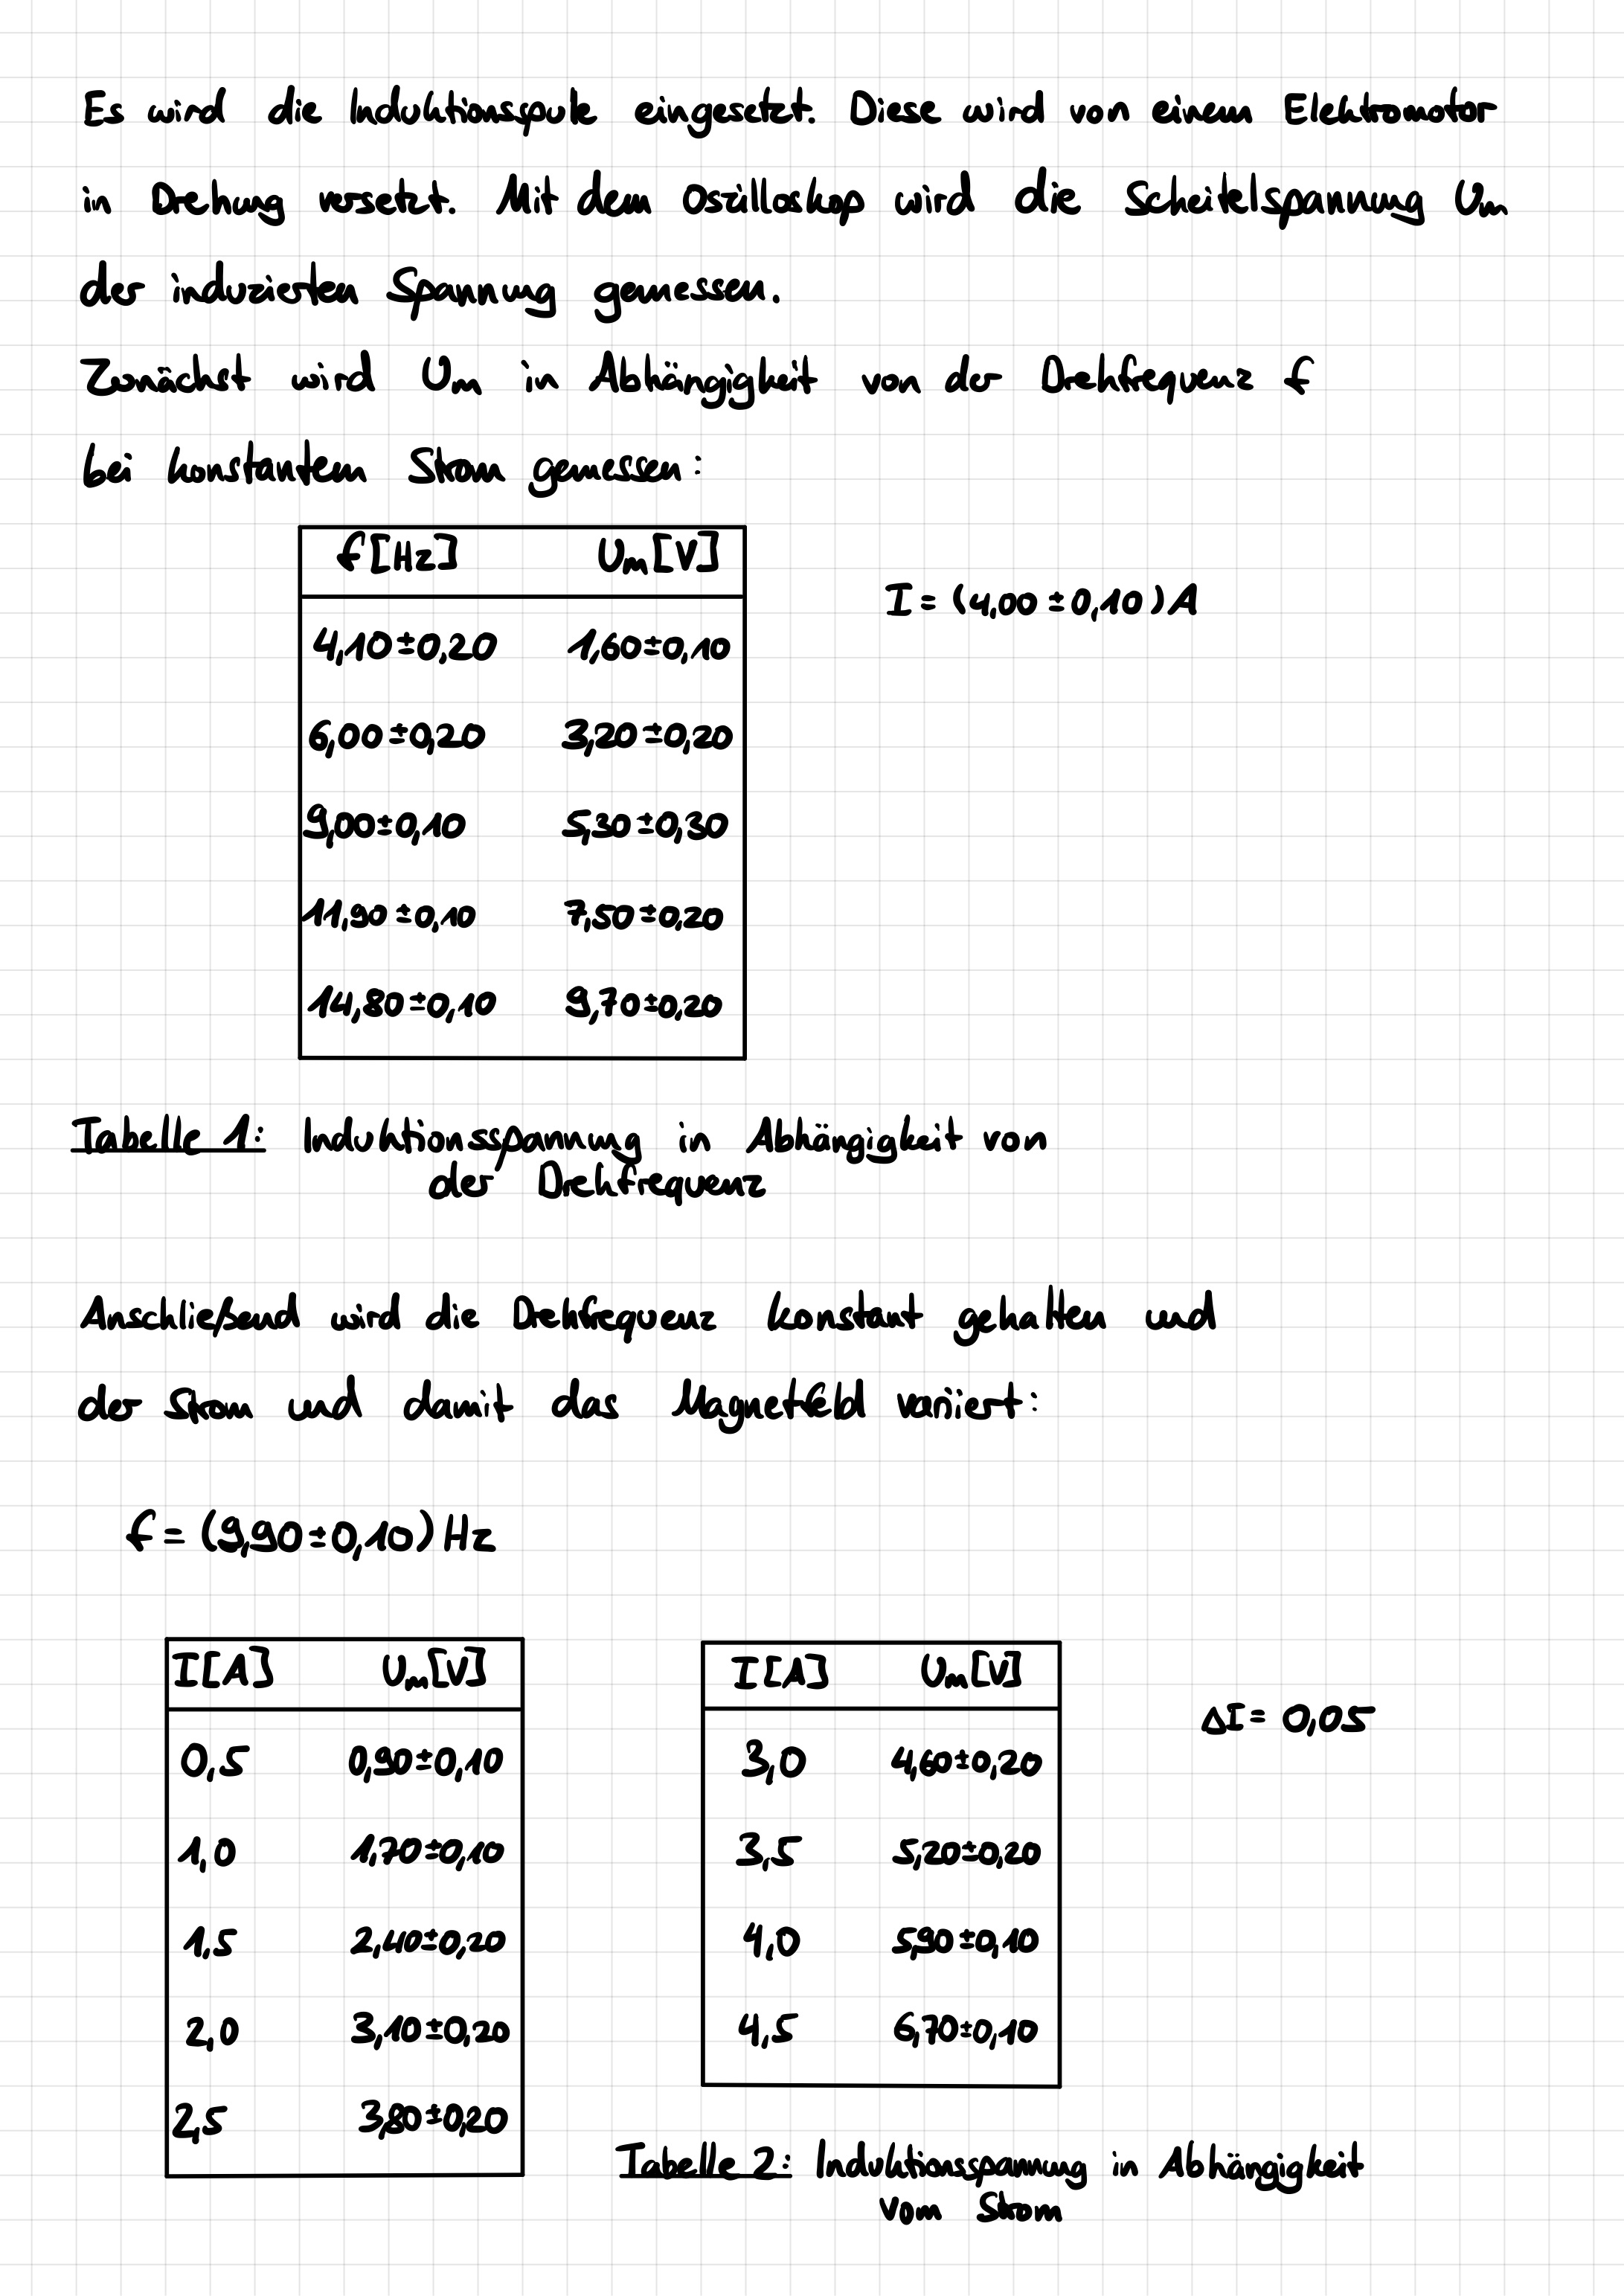 Es wird die Induktionsspule eingesetzt. Diese wird von einem Elektromotor
in Drehung versetzt. Mit dem Oszilloskop wird die Scheitelspannung Um
der induzierten Spannung gemessen.
Zunächst wird Um in Abhängigkeit von der Drehfrequenz f
bei konstantem Strom gemessen:
f[Hz] Um[V]
I = (4,00 ± 0,10) A
4,10 ± 0,20 1,60 ± 0,10
6,00 ± 0,20 3,20 ± 0,20
9,00 ± 0,10 5,30 ± 0,30
11,90 ± 0,10 7,50 ± 0,20
14,80 ± 0,10 9,70 ± 0,20
Tabelle 1: Induktionsspannung in Abhängigkeit von
der Drehfrequenz
Anschließend wird die Drehfrequenz konstant gehalten und
der Strom und damit das Magnetfeld variiert:
f = (9,90 ± 0,10) Hz
I[A] Um[V]
0,5 0,90 ± 0,10
1,0 1,70 ± 0,10
1,5 2,40 ± 0,20
2,0 3,10 ± 0,20
2,5 3,80 ± 0,20
I[A] Um[V]
3,0 4,60 ± 0,20
3,5 5,20 ± 0,20
4,0 5,90 ± 0,10
4,5 6,70 ± 0,10
ΔI = 0,05
Tabelle 2: Induktionsspannung in Abhängigkeit
vom Strom